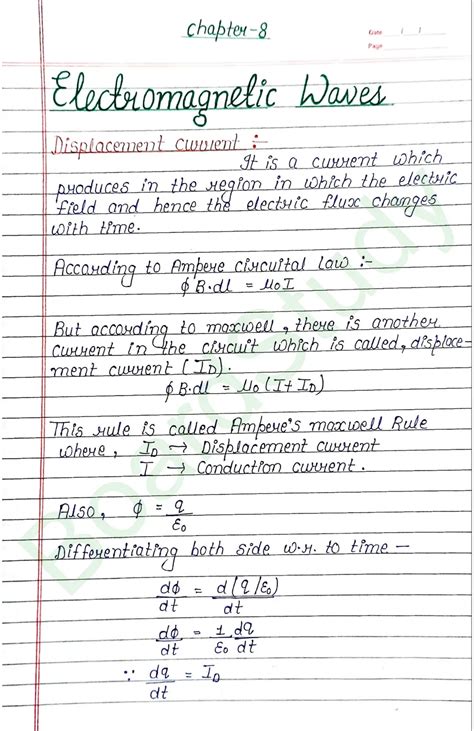 Chapter-8
Date ( )
Page
Electromagnetic Waves
Displacement current :-
It is a current which
produces in the region in which the electric
field and hence the electric flux changes
with time.
According to Ampere circuital law :-
ϕ B·dl = μ0I
But according to maxwell, there is another
current in the circuit which is called, displace-
ment current (ID).
ϕ B·dl = μ0 (I + ID)
This rule is called Ampere's maxwell Rule
where, ID → Displacement current
I → Conduction current.
Also, ϕ = q/ε0
Differentiating both side w.r. to time —
dϕ/dt = d(q/ε0)/dt
dϕ/dt = 1/ε0 dq/dt
∵ dq/dt = ID
BoardStudy